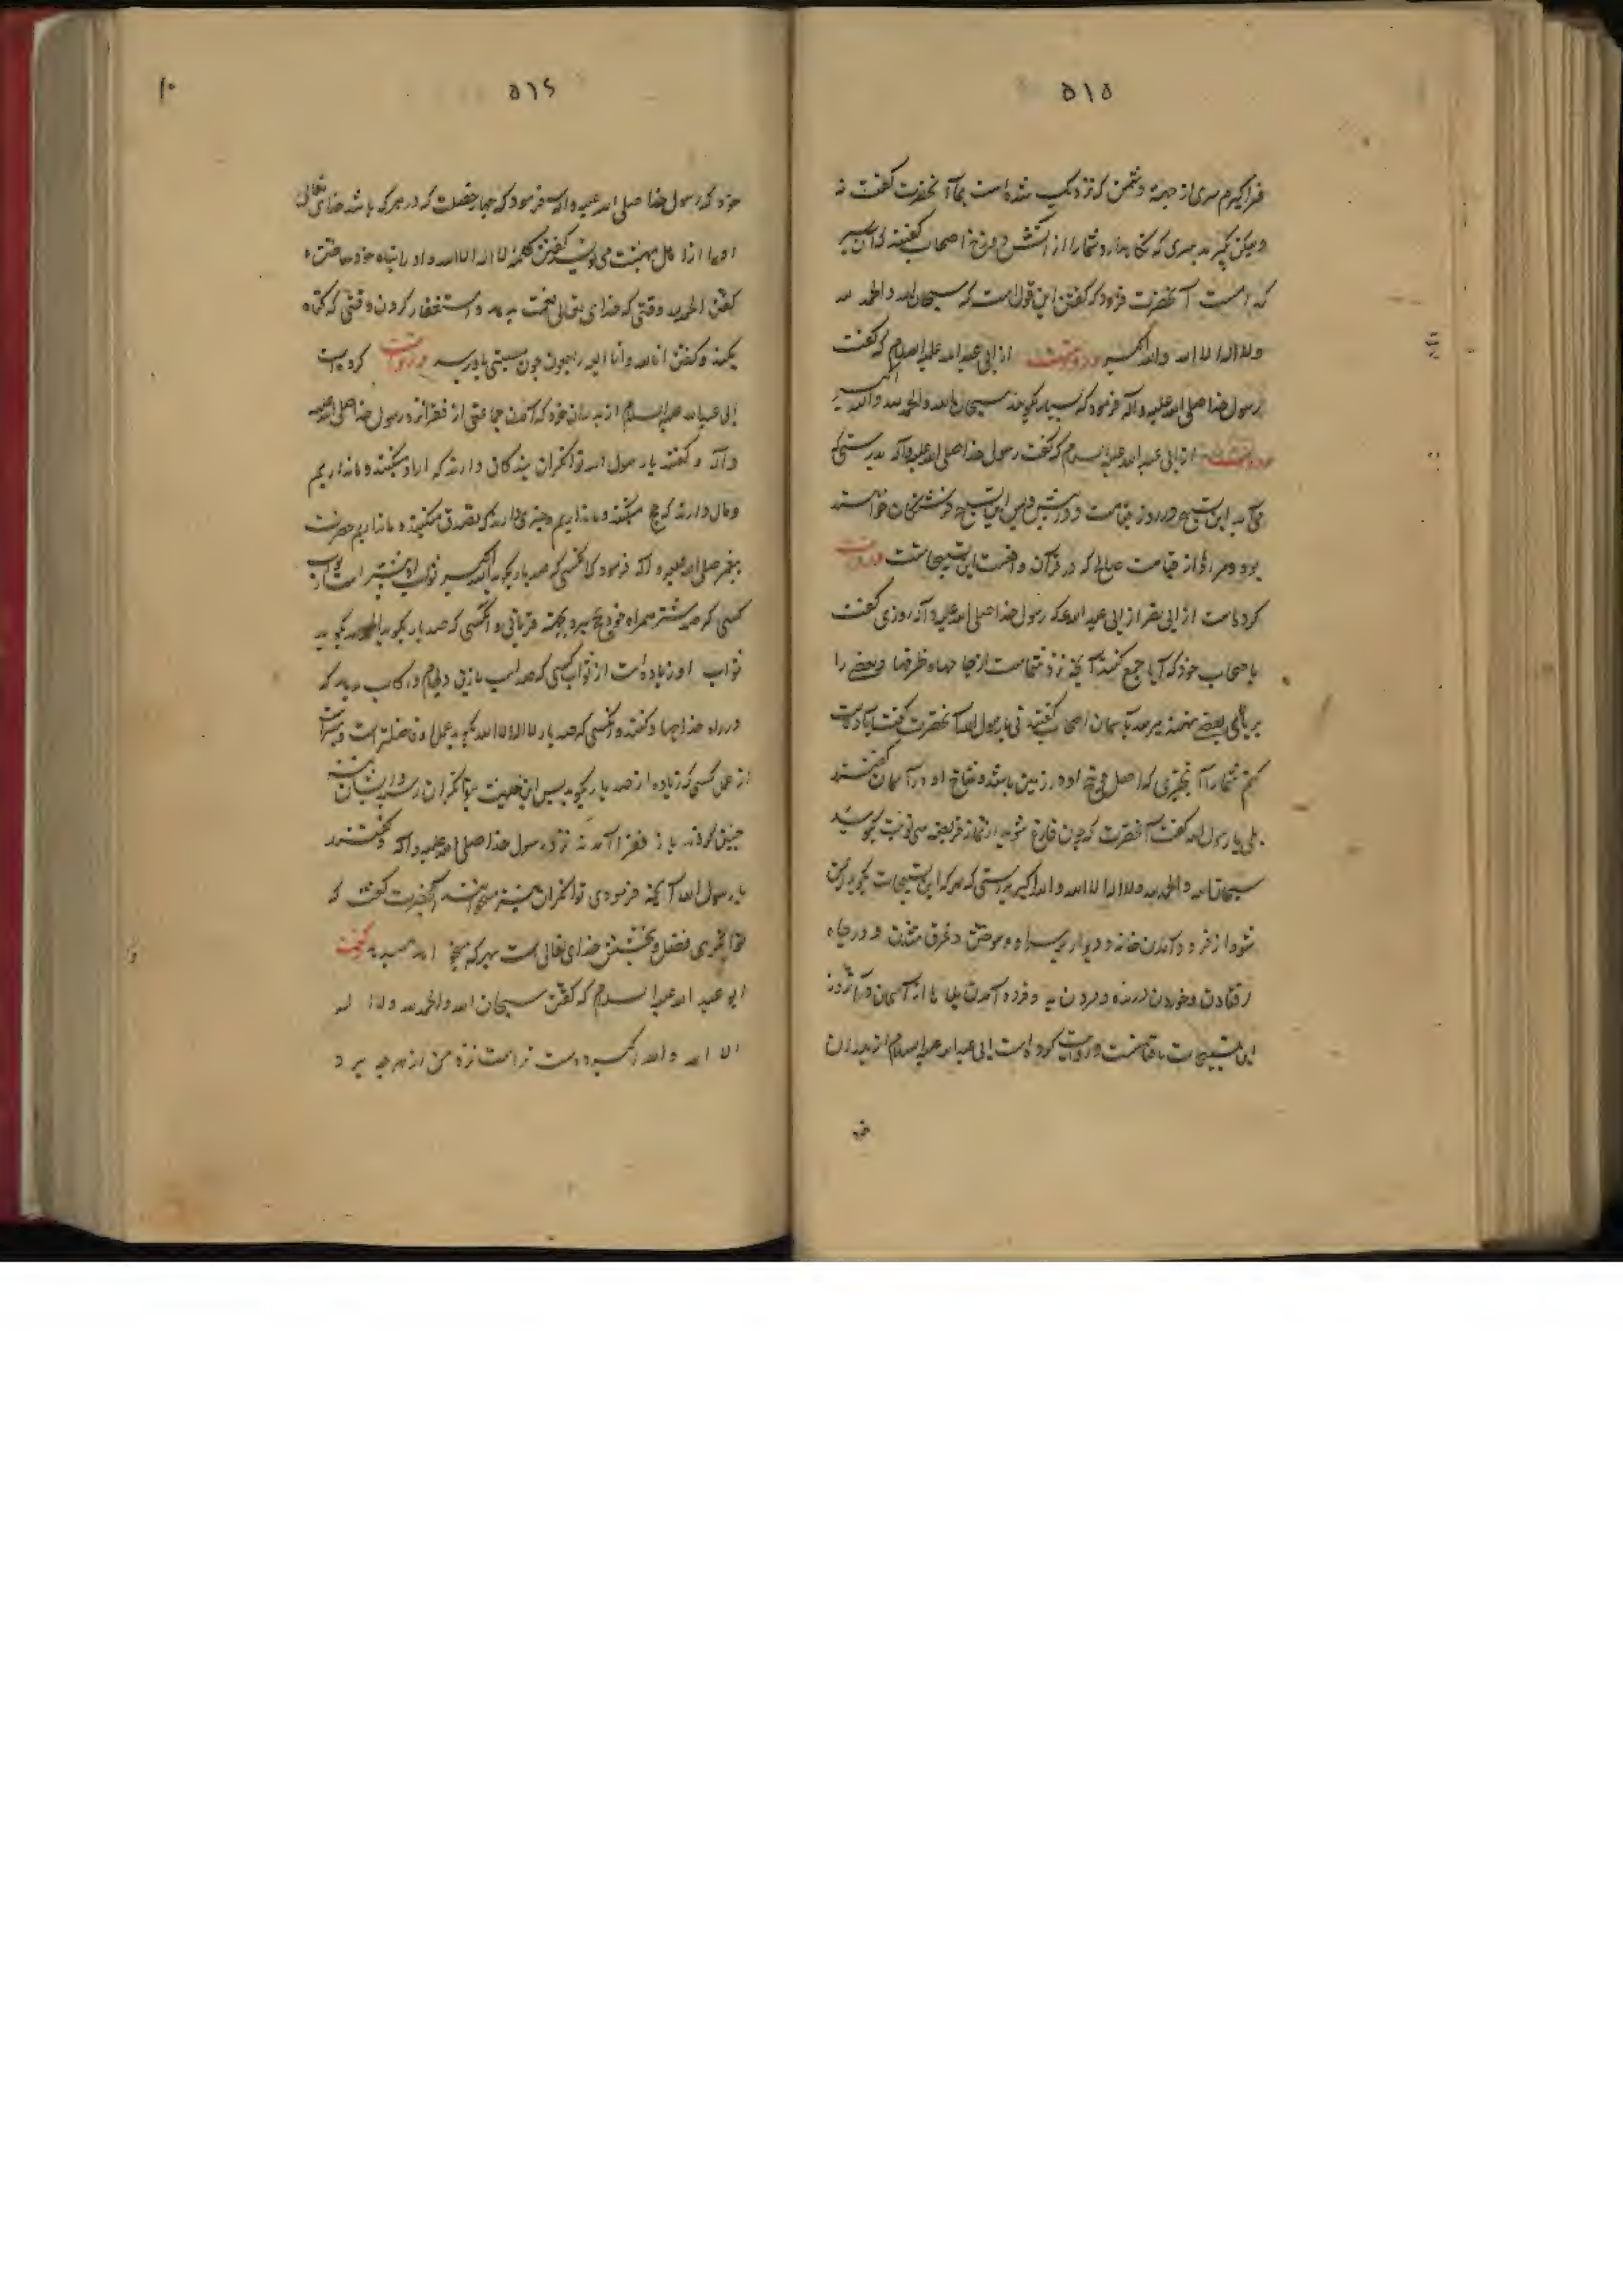 ۵۱۵
فراگیرم سپری از جهة دشمن که نزدیک شده است بما آنحضرت گفت نه
ولیکن بگیرید سپری که نگاه دارد شما را از آتش دوزخ اصحاب گفتند کدام سپر
که است آنحضرت فرمود که گفتن این قول است که سبحان الله والحمد لله
ولا اله الا الله والله اکبر و روایتست از ابی عبد الله علیه السلام که گفت
رسول خدا صلی الله علیه وآله فرمود که بسیار بگویید سبحان الله والحمد لله والله اکبر
و روایتست از ابی عبد الله علیه السلام که گفت رسول خدا صلی الله علیه وآله بدرستی که
می آید این تسبیح در روز قیامت و در پیش و پس این تسبیح فرشتگان خواهند
بود و مراد از قیامت صالحات که در قرآن واقعست این تسبیحاتست و روایت
کرده است از ابی بصیر از ابی عبد الله که رسول خدا صلی الله علیه وآله روزی گفت
باصحاب خود که آیا جمع کنید آنچه نزد شماست از جامها و ظرفها و بعضی را
بر بالای بعضی نهید میرسد بآسمان اصحاب گفتند نی یا رسول الله آنحضرت گفت آیا دلالت
کنم شما را بچیزی که اصل و بیخ او در زمین باشد و شاخ او در آسمان گفتند
بلی یا رسول الله گفت آنحضرت که چون فارغ شوید از نماز فریضه سی نوبت بگویید
سبحان الله والحمد لله ولا اله الا الله والله اکبر بدرستی که هر که این تسبیحات بگوید ایمن
شود از فرود آمدن خانه و دیوار بر سر او و سوختن و غرق شدن و در چاه
افتادن و خوردن درنده و مردن بد و فرود آمدن بلاها از آسمان در آنروز
این تسبیحات باقیاتست و روایت کرده است ابی عبد الله علیه السلام از پدران
خود
۵۱۶
۱۰
خود که رسول خدا صلی الله علیه وآله فرمود که چهار خصلت که در هر که باشد خدای تعالی
او را از اهل بهشت می نویسد گفتن کلمه لا اله الا الله و او را پناه خود ساختن و
گفتن الحمد لله وقتی که خدای تعالی نعمت بدهد و استغفار کردن وقتی که گناه
بکند و گفتن انا لله وانا الیه راجعون چون مصیبتی باو رسد و روایت کرده است
ابی عبد الله علیه السلام از پدران خود که آمدند جماعتی از فقرا نزد رسول خدا صلی الله علیه
وآله و گفتند یا رسول الله توانگران بندگان دارند که آزاد میکنند و ما نداریم
و مال دارند که حج میکنند و ما نداریم و چیزی دارند که تصدق میکنند و ما نداریم حضرت
پیغمبر صلی الله علیه وآله فرمود که آنکسی که صد بار بگوید الله اکبر ثواب او بیشتر است از ثواب
کسی که صد شتر همراه خود بحج میبرد بجهت قربانی و آنکسی که صد بار بگوید الحمد لله بگوید
ثواب او زیاده است از ثواب کسی که صد اسب با زین و لجام و رکاب بدهد که
در راه خدا جهاد کنند و آنکسی که صد بار لا اله الا الله بگوید عمل او فاضلتر است و بیشتر است
از عمل کسی که زیاده از صد بار بگوید پس این حدیث بتوانگران رسید و ایشان نیز
چنین کردند باز فقرا آمدند نزد رسول خدا صلی الله علیه وآله و گفتند
یا رسول الله آنچه فرمودی توانگران نیز میکنند آنحضرت گفت که
توانگری فضل و بخشش خدای تعالی است بهر که میخواهد میدهد گفت
ابو عبد الله علیه السلام که گفتن سبحان الله والحمد لله ولا اله
الا الله والله اکبر دوست تر است نزد من از هر چه برو